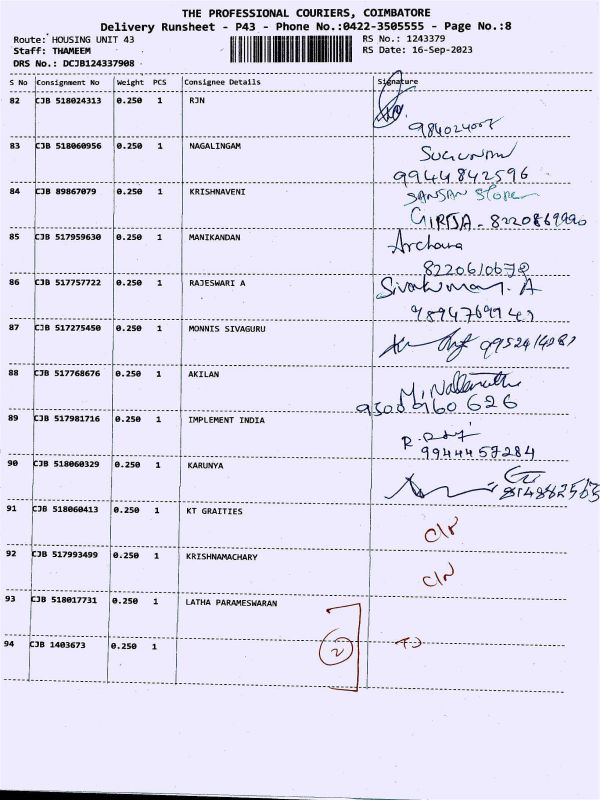 THE PROFESSIONAL COURIERS, COIMBATORE
Delivery Runsheet - P43 - Phone No.:0422-3505555 - Page No.:8
Route: HOUSING UNIT 43 RS No.: 1243379
Staff: THAMEEM RS Date: 16-Sep-2023
DRS No.: DCJB124337908
S No Consignment No Weight PCS Consignee Details Signature
82 CJB 518024313 0.250 1 RJN
83 CJB 518060956 0.250 1 NAGALINGAM
99448 42596
84 CJB 89867079 0.250 1 KRISHNAVENI SANSAN Store
GIRIJA - 8220869990
85 CJB 517959630 0.250 1 MANIKANDAN Archana
86 CJB 517757722 0.250 1 RAJESWARI A Sivakumar. A
87 CJB 517275450 0.250 1 MONNIS SIVAGURU
88 CJB 517768676 0.250 1 AKILAN
9500 960 626
89 CJB 517981716 0.250 1 IMPLEMENT INDIA
9944457284
90 CJB 518060329 0.250 1 KARUNYA
91 CJB 518060413 0.250 1 KT GRAITIES
92 CJB 517993499 0.250 1 KRISHNAMACHARY
93 CJB 518017731 0.250 1 LATHA PARAMESWARAN
94 CJB 1403673 0.250 1
2